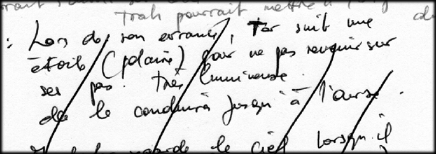 trait pourrait mettre à
: Lors de son errance, Tar suit une
étoile (polaire) pour ne pas revenir sur
ses pas. Très lumineuse.
de le conduira jusqu'à l'ourse.
regarde le ciel lorsqu'il